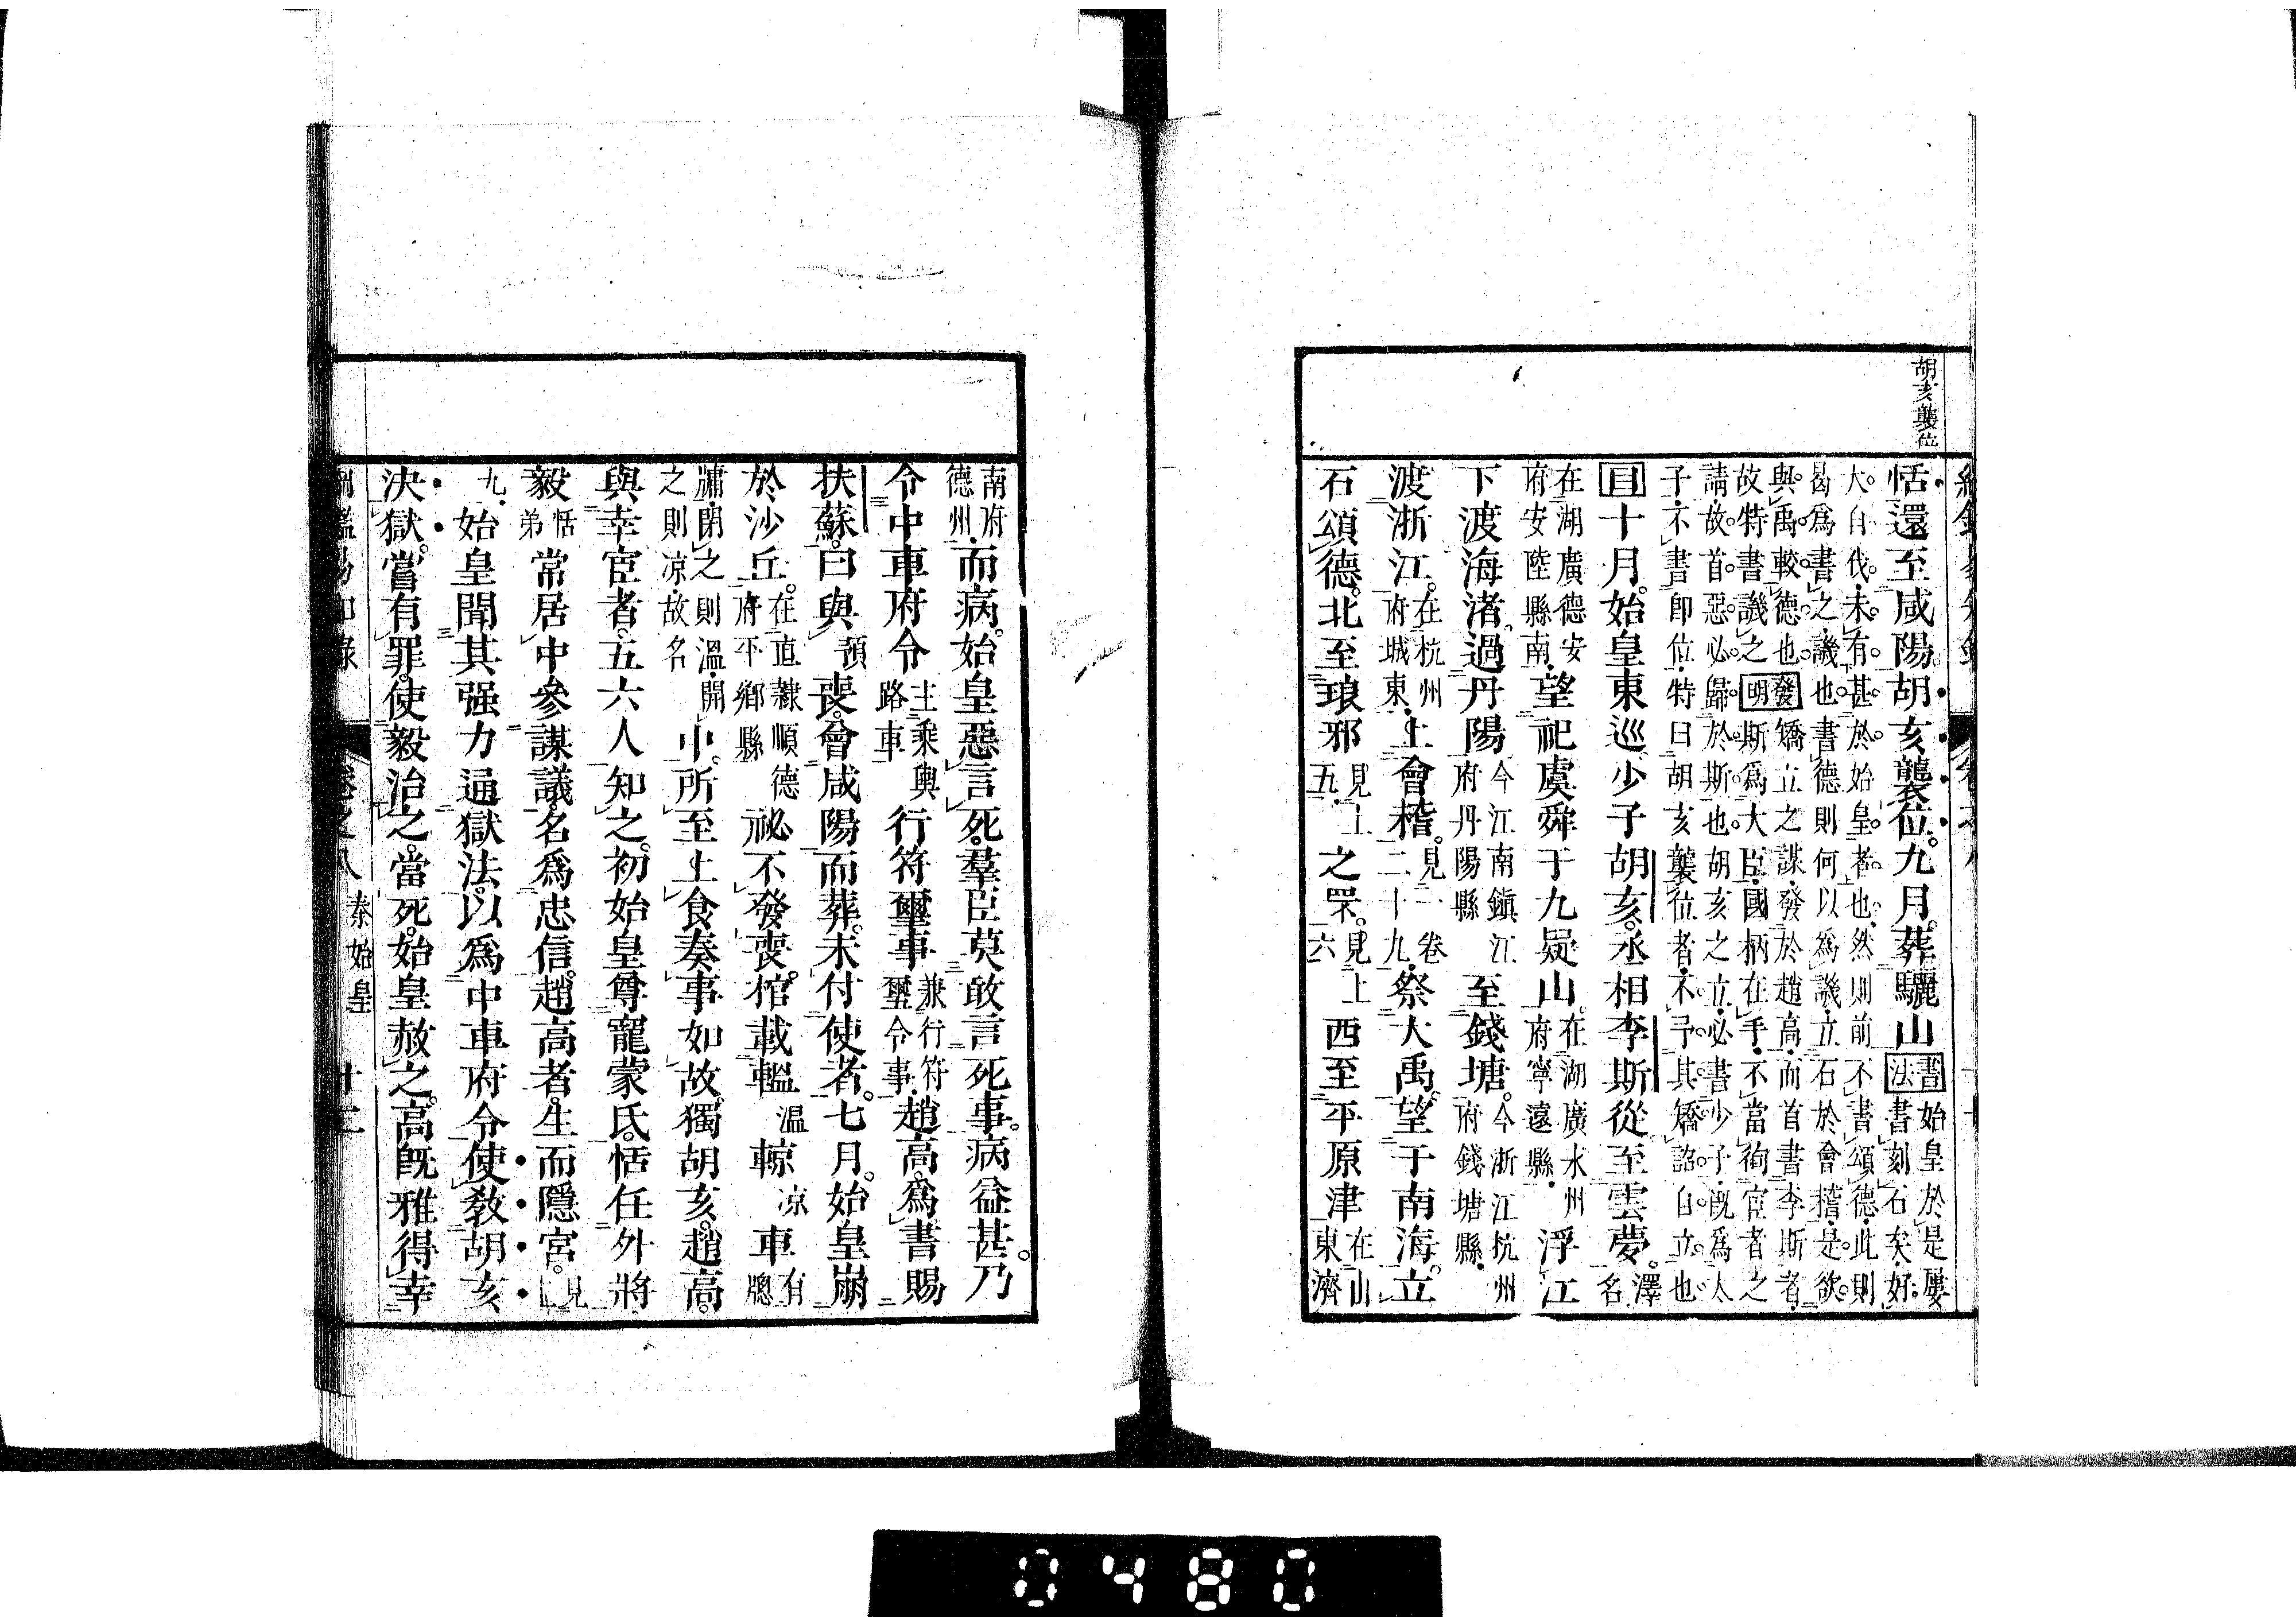 胡亥襲位
恬還至咸陽。胡亥襲位。九月。葬驪山書法始皇於是屢書刻石矣。好
大自伐。未有甚於始皇者也。然則前不書頌德。此則
曷爲書之。譏也。書德則何以為譏。立石於會稽。是欲
與禹較德也。發明矯立之謀。發於趙高。而首書李斯者。
故特書譏之斯爲大臣。國柄在手。不當徇宦者之
請。故首惡必歸於斯也。胡亥之立。必書少子。旣爲人
子。不書即位。特曰胡亥襲位者。不予其矯詔自立也
目十月。始皇東巡。少子胡亥。丞相李斯從至雲夢。澤名
在湖廣德安府安陸縣南。望祀虞舜于九疑山。在湖廣永州府寧遠縣。浮江
下渡海渚。過丹陽今江南鎭江府丹陽縣至錢塘。今浙江杭州府錢塘縣。
渡浙江。在杭州府城東。上會稽。見一卷二十九。祭大禹。望于南海。立
石頌德。北至琅邪見上五。之罘。見上六西至平原津在山東濟
南府德州。而病。始皇惡言死。羣臣莫敢言死事。病益甚。乃
令中車府令主乘輿路車行符璽事兼行符璽令事。趙高。爲書賜
扶蘇。曰與預喪。會咸陽而葬。未付使者。七月。始皇崩
於沙丘。在直隸順德府平鄉縣祕不發喪。棺載轀溫輬凉車有牕
牗。閉之則溫。開之則凉。故名中。所至上食奏事如故。獨胡亥。趙高。
與幸宦者。五六人知之。初始皇尊寵蒙氏。恬任外將
毅恬弟常居中參謀議。名爲忠信。趙高者。生而隱宮。見上
九。始皇聞其强力通獄法。以爲中車府令使敎胡亥
決獄。嘗有罪。使毅治之。當死。始皇赦之。高旣雅得幸
綱鑑易知錄 卷之八 秦始皇 十二
0480